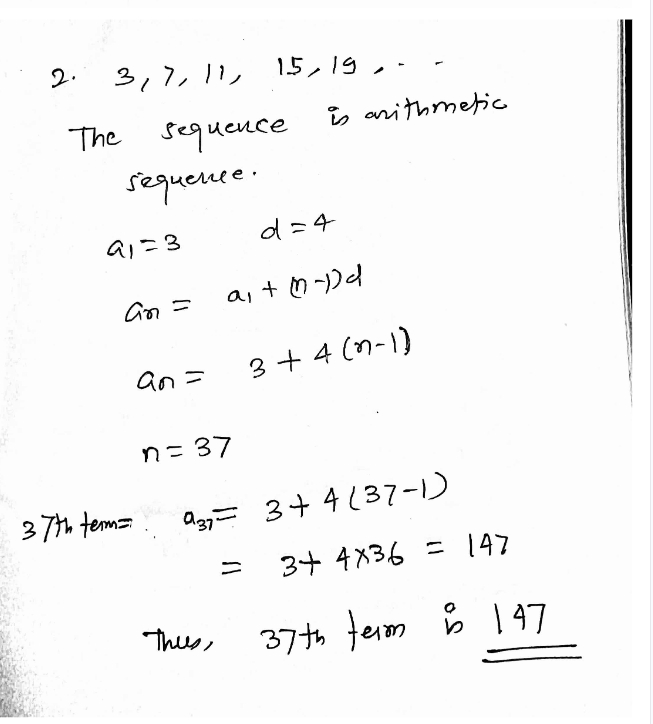 2. 3, 7, 11, 15, 19, . -
The sequence is arithmetic
sequence.
a1 = 3 d = 4
an = a1 + (n-1)d
an = 3 + 4 (n-1)
n = 37
37th term = a37 = 3 + 4 (37-1)
= 3 + 4×36 = 147
Thus, 37th term is 147